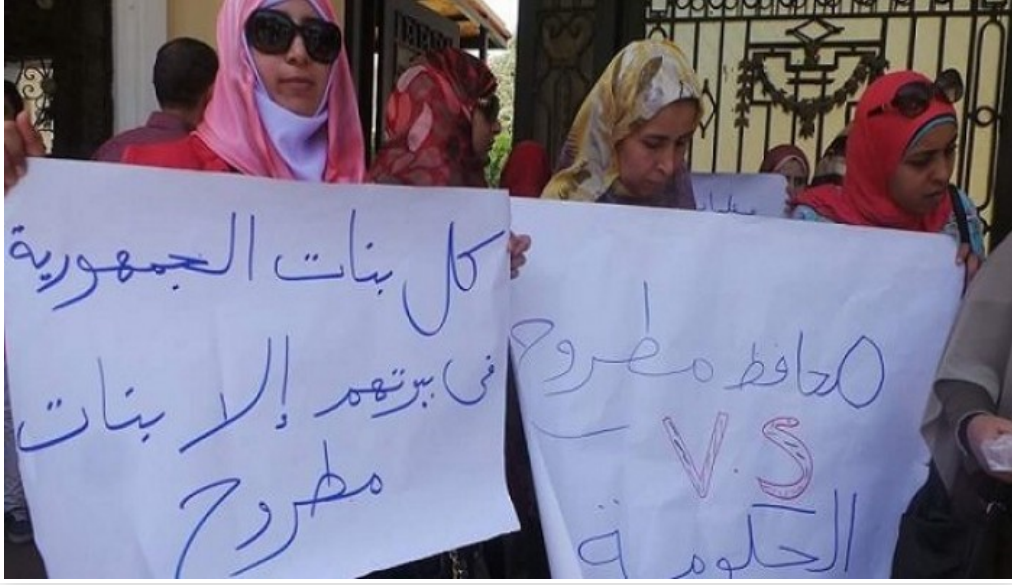 كل بنات الجمهورية
فى بيوتهم إلا بنات
مطروح
محافظ مطروح
V.S
الحكومة